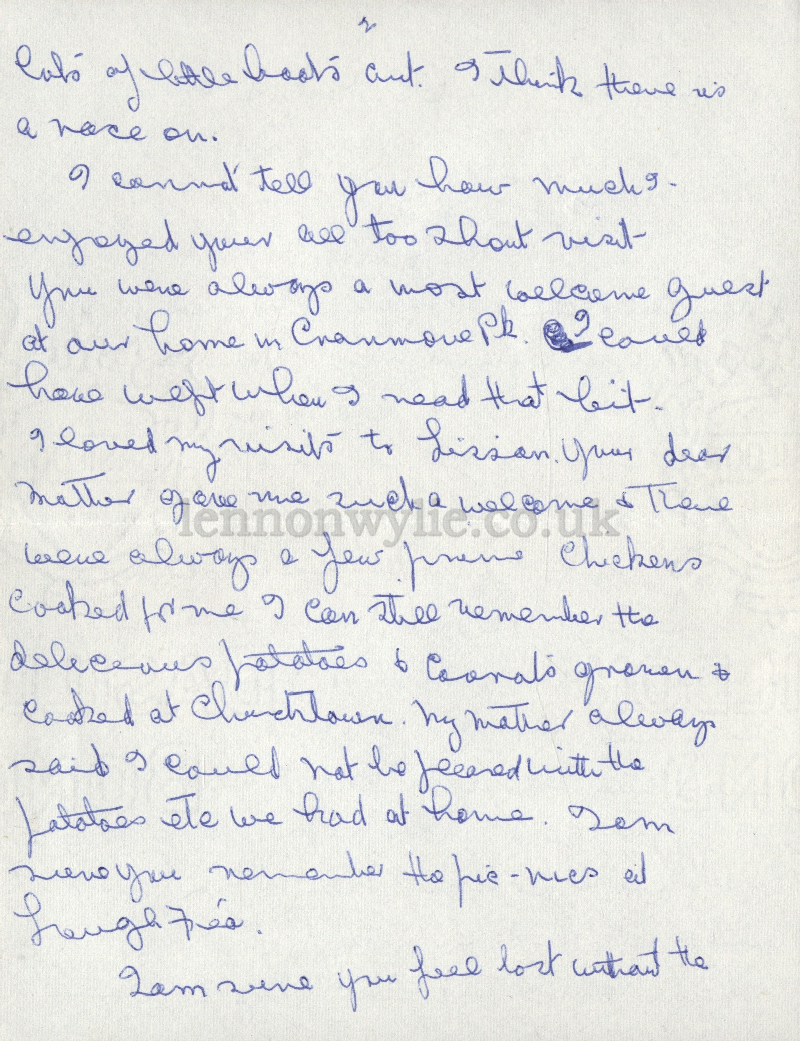 2
lots of little boats out. I think there is
a race on.
I cannot tell you how much I
enjoyed your all too short visit
You were always a most welcome guest
at our home in Cranmore Pk. I could
have wept when I read that bit.
I loved my visits to Lissan. Your dear
Mother gave me such a welcome & There
were always a few prime Chickens
Cooked for me I can still remember the
delicious potatoes & Carrots grown &
Cooked at Churchtown. My mother always
said I could not be pleased with the
potatoes etc we had at home. I am
sure you remember the pic-nics at
Lough Fea.
I am sure you feel lost without the
lennonwylie.co.uk